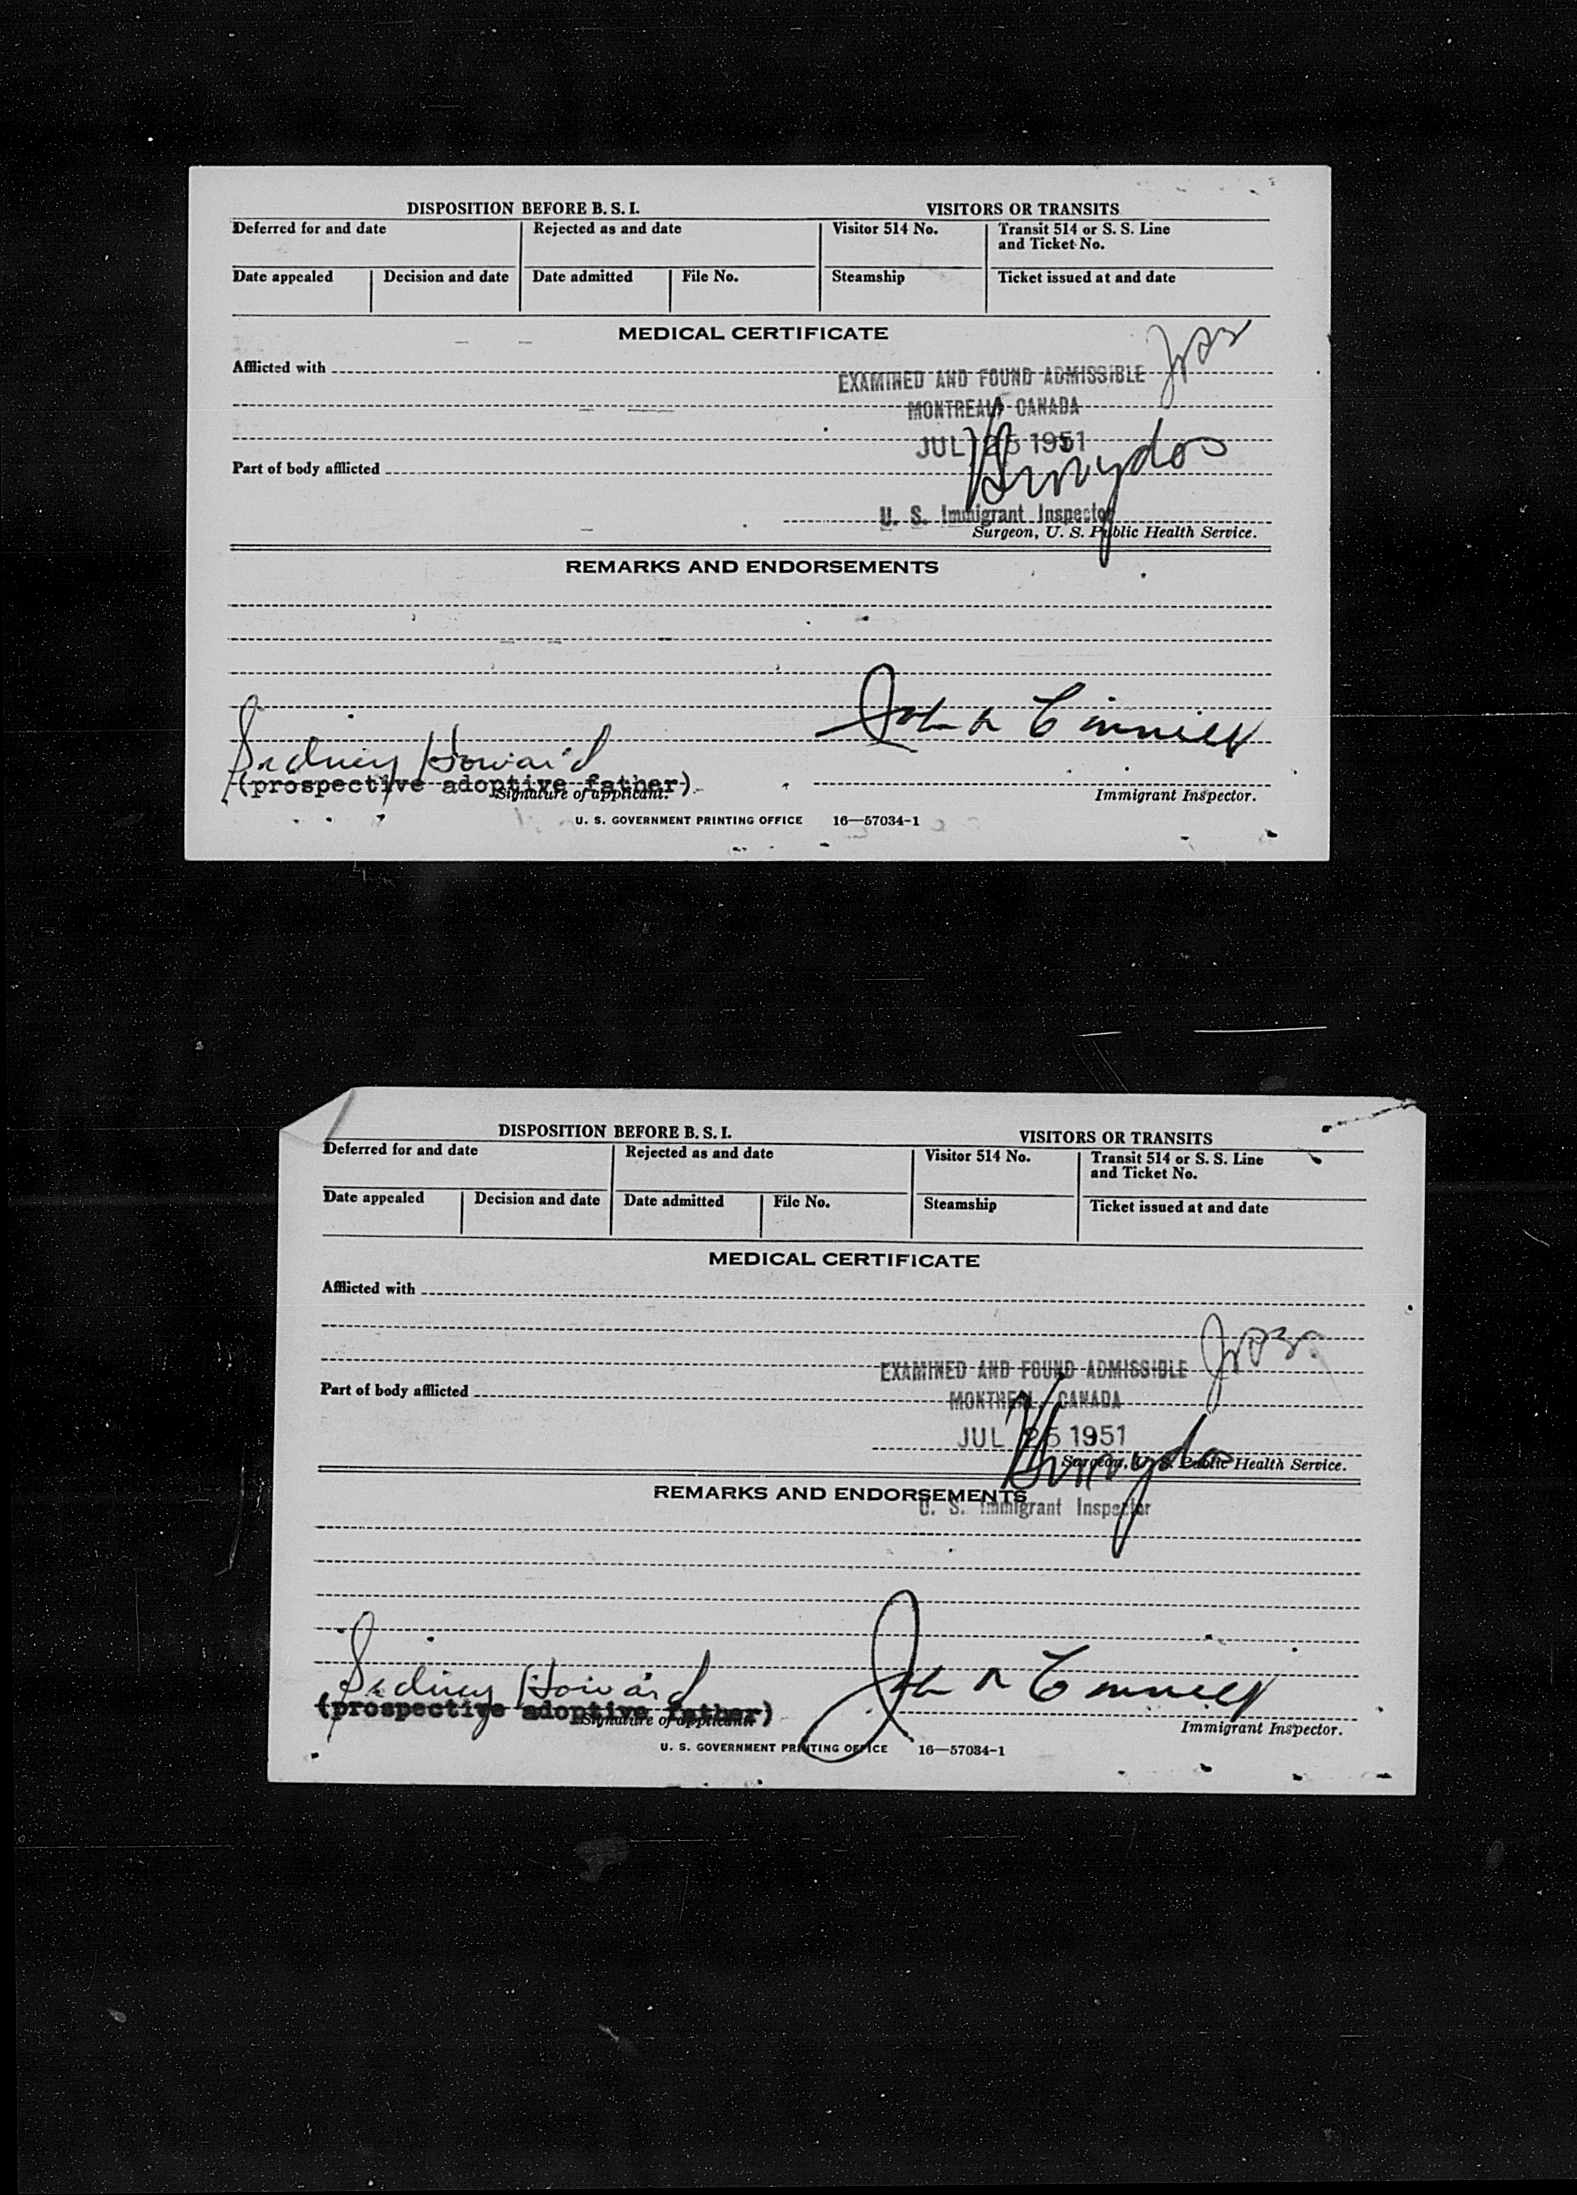 DISPOSITION BEFORE B. S. I.
VISITORS OR TRANSITS
Deferred for and date
Rejected as and date
Visitor 514 No.
Transit 514 or S. S. Line
and Ticket No.
Date appealed
Decision and date
Date admitted
File No.
Steamship
Ticket issued at and date
MEDICAL CERTIFICATE
Afflicted with
EXAMINED AND FOUND ADMISSIBLE
MONTREAL, CANADA
JUL 25 1951
Part of body afflicted
U. S. Immigrant Inspector
Surgeon, U. S. Public Health Service.
REMARKS AND ENDORSEMENTS
John R
Sidney Howard
(prospective adoptive father)
Signature of applicant.
Immigrant Inspector.
U. S. GOVERNMENT PRINTING OFFICE 16—57034-1
DISPOSITION BEFORE B. S. I.
VISITORS OR TRANSITS
Deferred for and date
Rejected as and date
Visitor 514 No.
Transit 514 or S. S. Line
and Ticket No.
Date appealed
Decision and date
Date admitted
File No.
Steamship
Ticket issued at and date
MEDICAL CERTIFICATE
Afflicted with
EXAMINED AND FOUND ADMISSIBLE
Part of body afflicted
MONTREAL, CANADA
JUL 25 1951
Surgeon, U. S. Public Health Service.
REMARKS AND ENDORSEMENTS
U. S. Immigrant Inspector
Sidney Howard
John R
(prospective adoptive father)
Signature of applicant.
Immigrant Inspector.
U. S. GOVERNMENT PRINTING OFFICE 16—57034-1